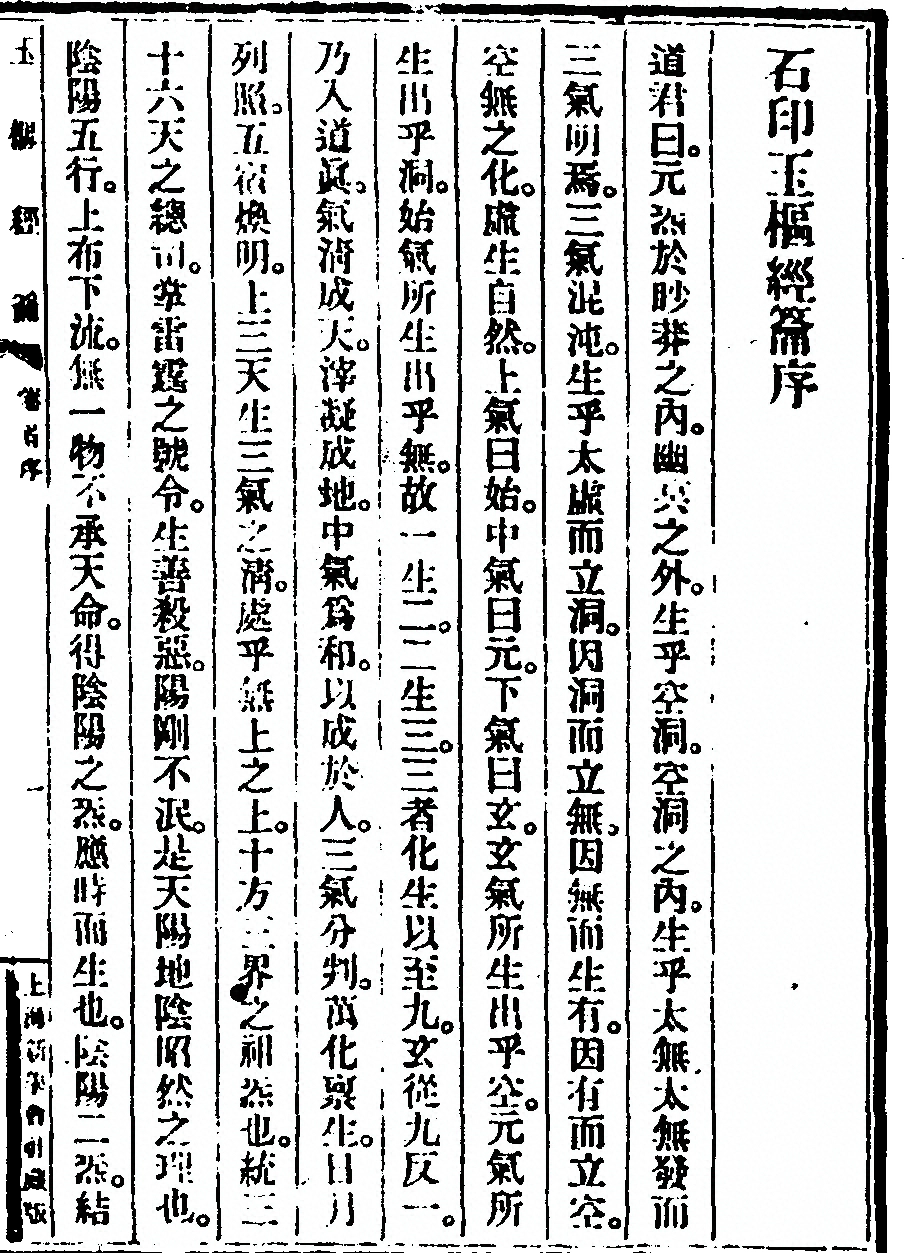 石印玉樞經籥序
道君曰。元炁於眇莽之內。幽冥之外。生乎空洞。空洞之內。生乎太無太無發而
三氣明焉。三氣混沌。生乎太虛而立洞。因洞而立無。因無而生有。因有而立空。
空無之化。虛生自然。上氣曰始。中氣曰元。下氣曰玄。玄氣所生出乎空。元氣所
生出乎洞。始氣所生出乎無。故一生二。二生三。三者化生以至九。玄從九反一。
乃入道眞。氣淸成天。滓凝成地。中氣爲和。以成於人。三氣分判。萬化稟生。日月
列照。五宿煥明。上三天生三氣之淸。處乎無上之上。十方三界之祖炁也。統三
十六天之總司。掌雷霆之號令。生善殺惡。陽剛不泯。是天陽地陰昭然之理也。
陰陽五行。上布下流。無一物不承天命。得陰陽之炁。應時而生也。陰陽二炁。結
玉樞經籥 序 一
上海